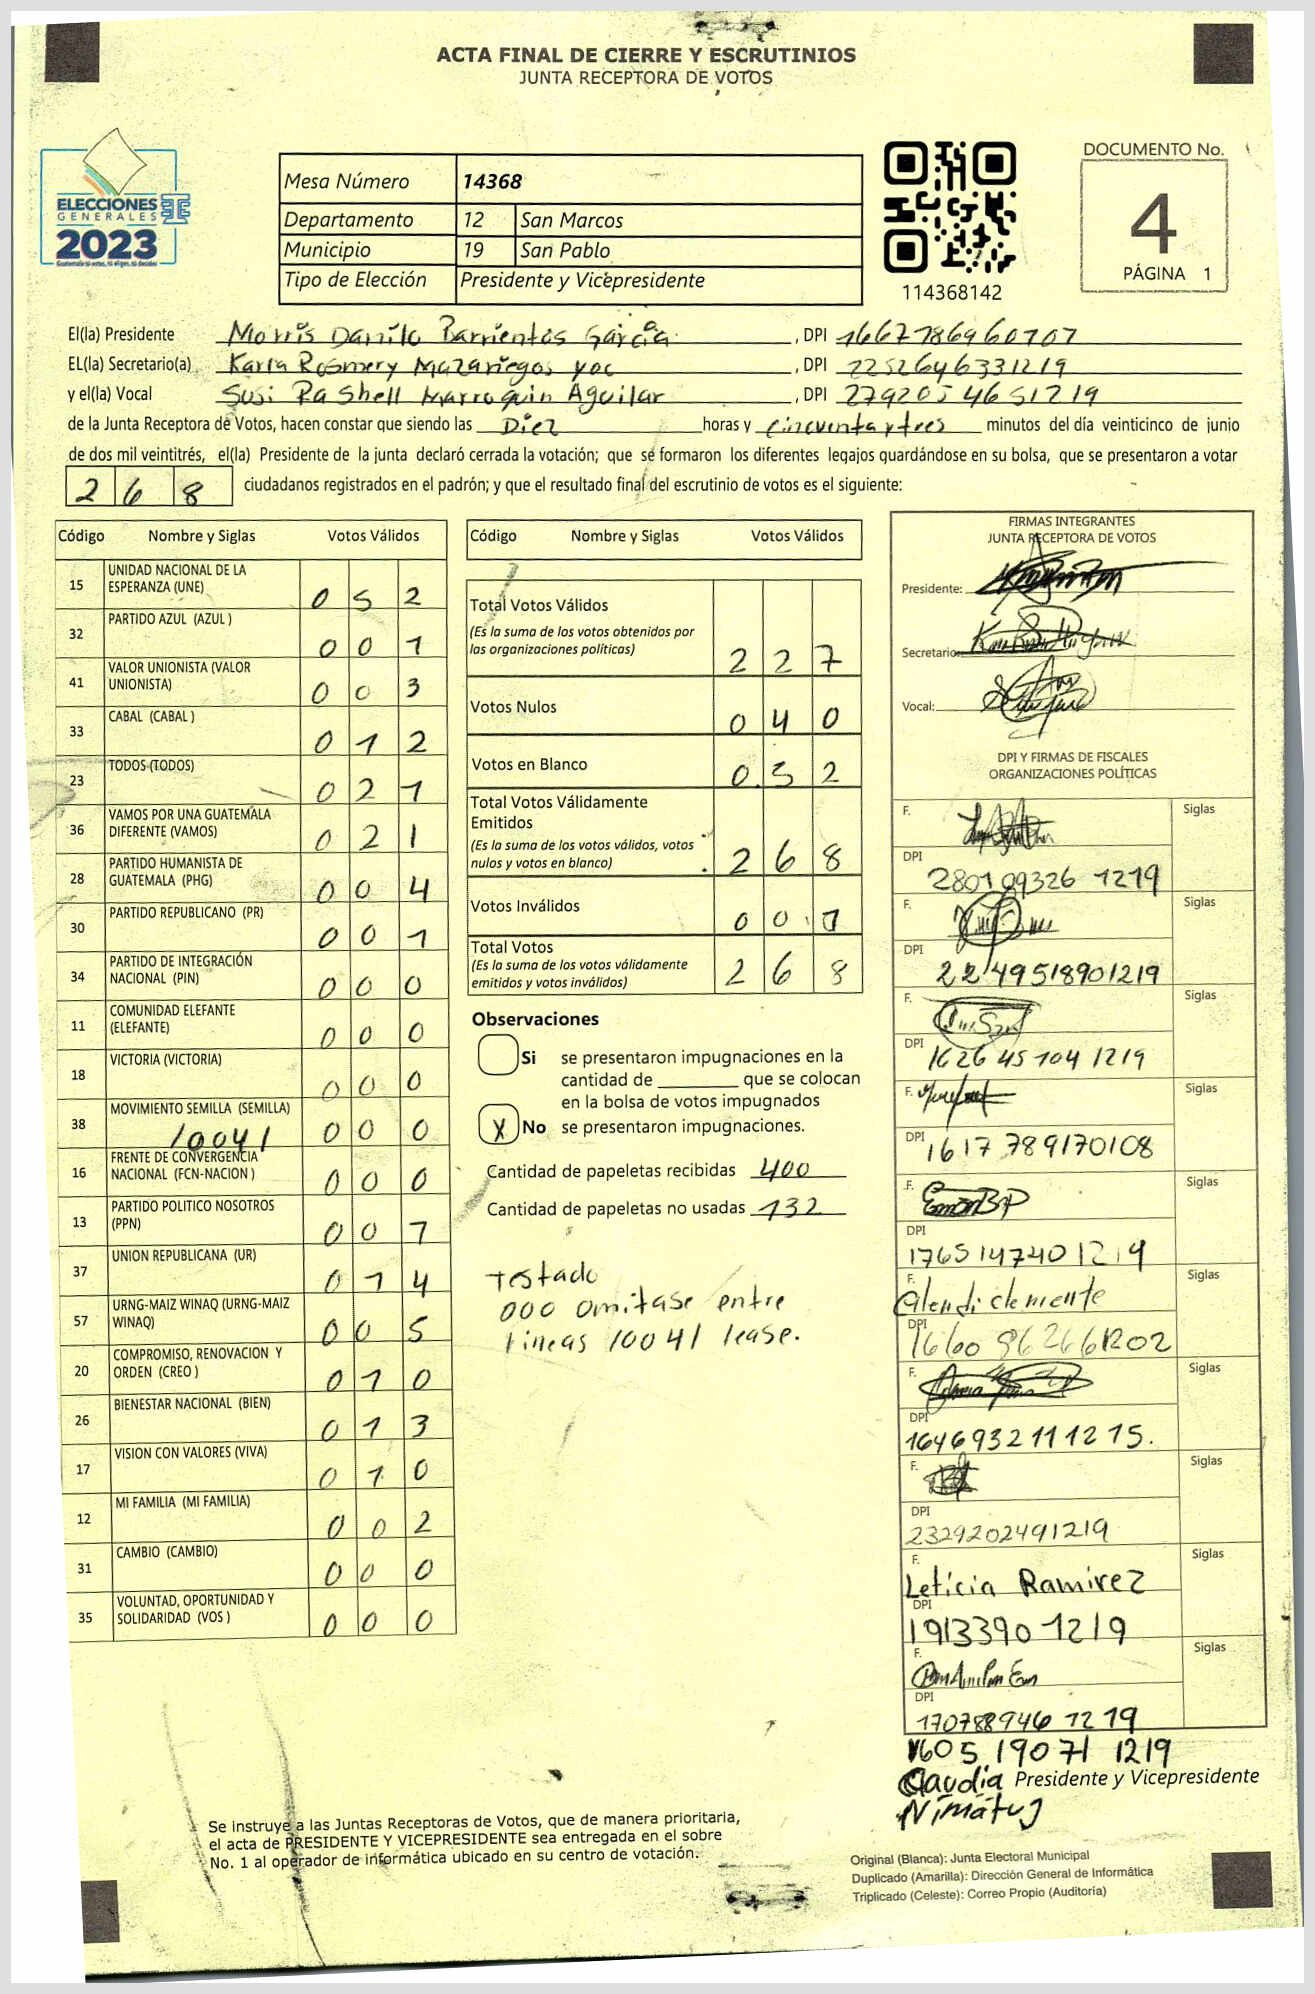 ACTA FINAL DE CIERRE Y ESCRUTINIOS
JUNTA RECEPTORA DE VOTOS
ELECCIONES
GENERALES
2023
Mesa Número 14368
Departamento 12 San Marcos
Municipio 19 San Pablo
Tipo de Elección Presidente y Vicepresidente
114368142
DOCUMENTO No.
4
PÁGINA 1
El(la) Presidente Morris Danilo Barrientos García, DPI 1667786960707
EL(la) Secretario(a) Karla Rosmery Mazariegos yoc, DPI 2252646331219
y el(la) Vocal Susi Ra Shell Marroquin Aguilar, DPI 279205 4651219
de la Junta Receptora de Votos, hacen constar que siendo las Diez horas y cincuenta y tres minutos del día veinticinco de junio
de dos mil veintitrés, el(la) Presidente de la junta declaró cerrada la votación; que se formaron los diferentes legajos guardándose en su bolsa, que se presentaron a votar
268 ciudadanos registrados en el padrón; y que el resultado final del escrutinio de votos es el siguiente:
Código Nombre y Siglas Votos Válidos
15 UNIDAD NACIONAL DE LA ESPERANZA (UNE) 052
32 PARTIDO AZUL (AZUL ) 001
41 VALOR UNIONISTA (VALOR UNIONISTA) 003
33 CABAL (CABAL ) 012
23 TODOS (TODOS) 021
36 VAMOS POR UNA GUATEMALA DIFERENTE (VAMOS) 021
28 PARTIDO HUMANISTA DE GUATEMALA (PHG) 004
30 PARTIDO REPUBLICANO (PR) 001
34 PARTIDO DE INTEGRACIÓN NACIONAL (PIN) 000
11 COMUNIDAD ELEFANTE (ELEFANTE) 000
18 VICTORIA (VICTORIA) 000
38 MOVIMIENTO SEMILLA (SEMILLA) 10041 000
16 FRENTE DE CONVERGENCIA NACIONAL (FCN-NACION ) 000
13 PARTIDO POLITICO NOSOTROS (PPN) 007
37 UNION REPUBLICANA (UR) 014
57 URNG-MAIZ WINAQ (URNG-MAIZ WINAQ) 005
20 COMPROMISO, RENOVACION Y ORDEN (CREO ) 010
26 BIENESTAR NACIONAL (BIEN) 013
17 VISION CON VALORES (VIVA) 010
12 MI FAMILIA (MI FAMILIA) 002
31 CAMBIO (CAMBIO) 000
35 VOLUNTAD, OPORTUNIDAD Y SOLIDARIDAD (VOS ) 000
Código Nombre y Siglas Votos Válidos
Total Votos Válidos
(Es la suma de los votos obtenidos por
las organizaciones políticas) 227
Votos Nulos 040
Votos en Blanco
Total Votos Válidamente
Emitidos
(Es la suma de los votos válidos, votos
nulos y votos en blanco) 268
Votos Inválidos
Total Votos
(Es la suma de los votos válidamente
emitidos y votos inválidos) 268
Observaciones
Si se presentaron impugnaciones en la
cantidad de ________ que se colocan
en la bolsa de votos impugnados
X No se presentaron impugnaciones.
Cantidad de papeletas recibidas 400
Cantidad de papeletas no usadas 132
Testado
000 omitase entre
lineas 10041 lease.
FIRMAS INTEGRANTES
JUNTA RECEPTORA DE VOTOS
Presidente:
Secretario:
Vocal:
DPI Y FIRMAS DE FISCALES
ORGANIZACIONES POLÍTICAS
F. Siglas
DPI
280109326 1219
F. Siglas
DPI
2249518901219
F. Siglas
DPI
1626 45 104 1219
F. Siglas
DPI 1617 789170108
F. Siglas
DPI
1765147401219
F. Siglas
Glendi clemente
DPI
F. Siglas
DPI
1646932111215.
F. Siglas
DPI
2329202491219
F. Siglas
Leticia Ramirez
DPI
1913390 1219
F. Siglas
DPI
170788946 1219
1605 19071 1219
Claudia Presidente y Vicepresidente
Nimátuj
Se instruye a las Juntas Receptoras de Votos, que de manera prioritaria,
el acta de PRESIDENTE Y VICEPRESIDENTE sea entregada en el sobre
No. 1 al operador de informática ubicado en su centro de votación.
Original (Blanca): Junta Electoral Municipal
Duplicado (Amarilla): Dirección General de Informática
Triplicado (Celeste): Correo Propio (Auditoría)